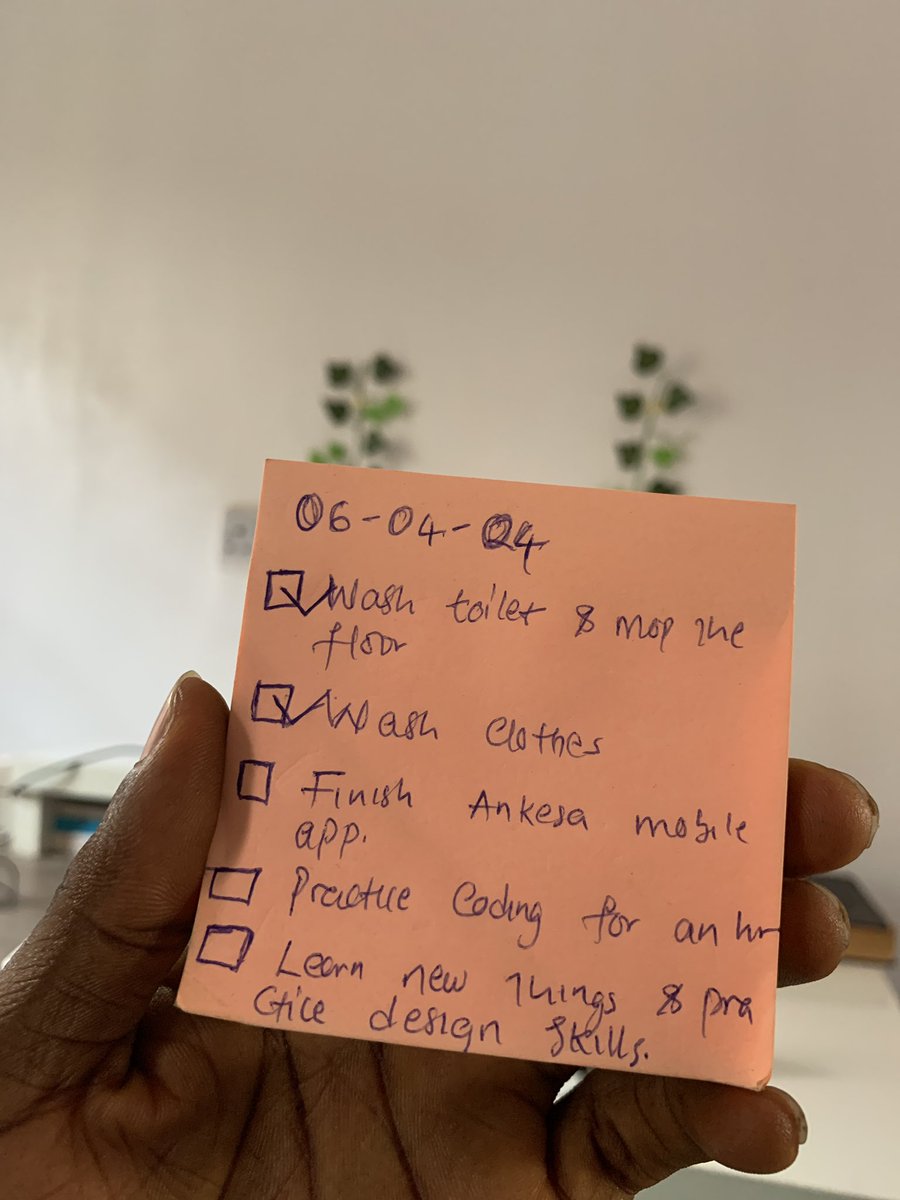 06-04-24
Wash toilet & mop the
floor
Wash clothes
Finish Ankesa mobile
app.
Practice Coding for an hr
Learn new things & pra
ctice design skills.